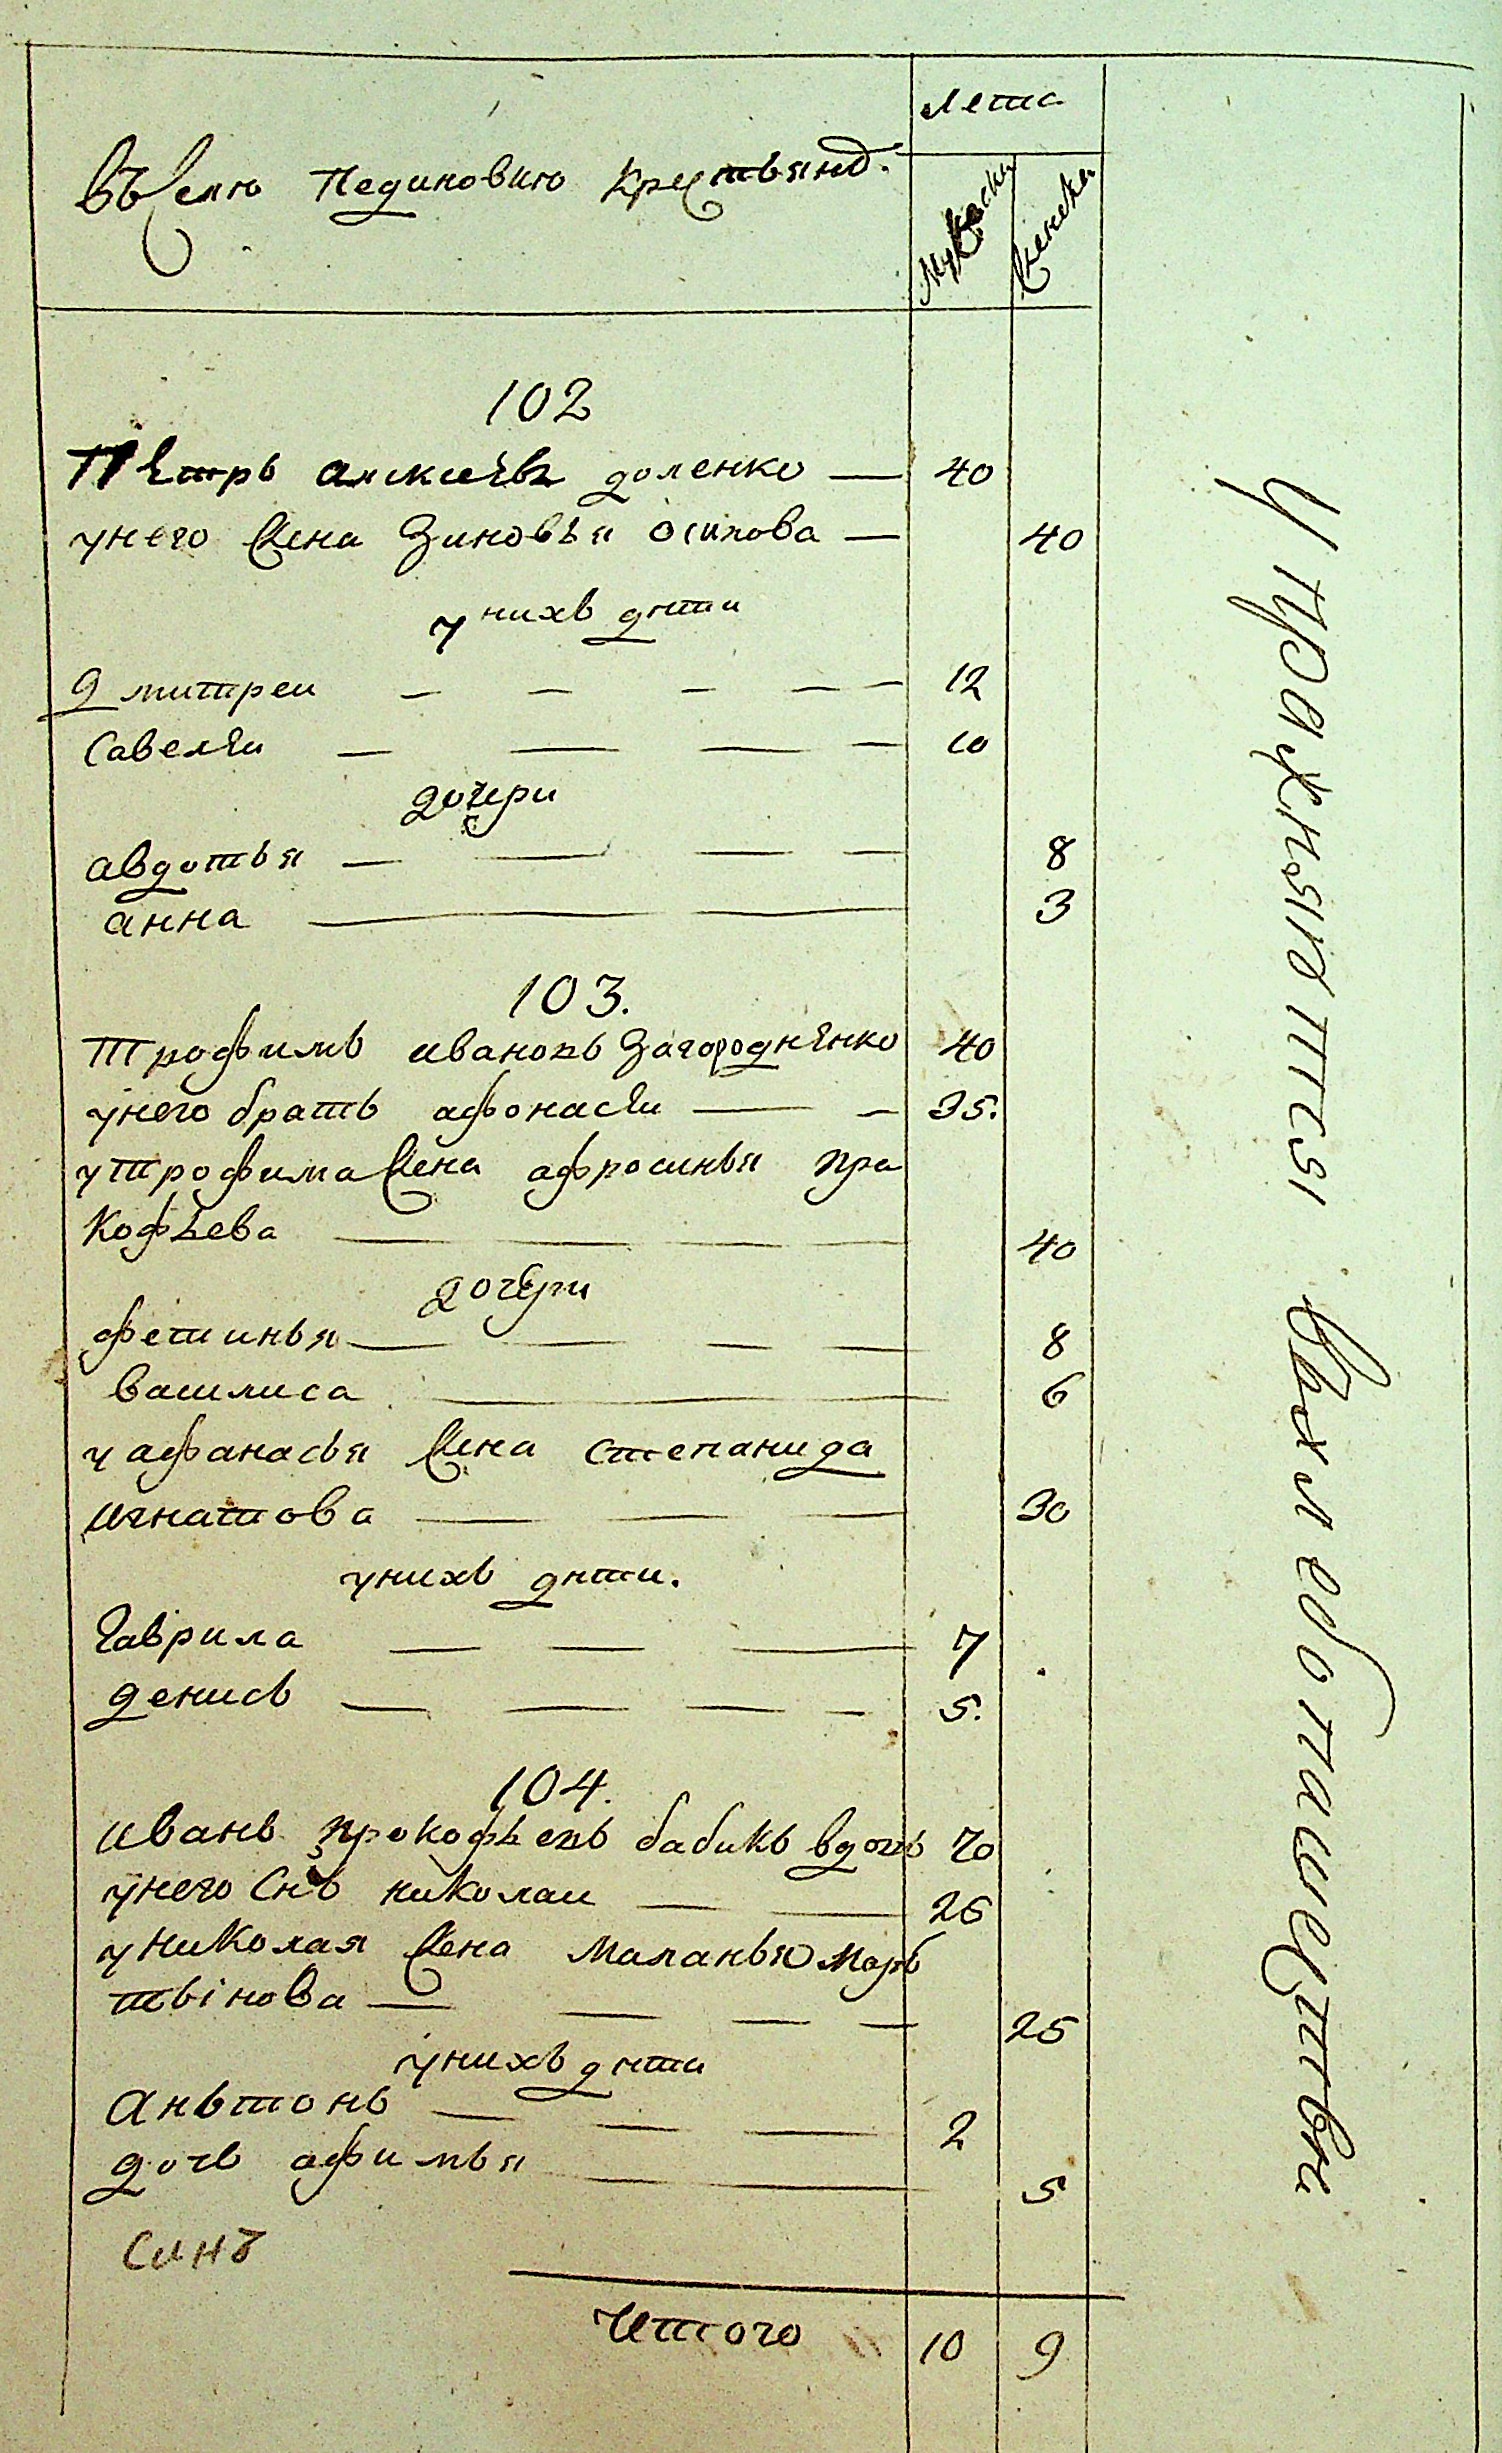 лета
въ селѣ Пединовкѣ крестьянъ.
Мужеска
женска
102
Петръ алексѣевъ доленко — 40
унего жена Зиновья осипова — 40
унихъ дѣти
дмитреи — — — — — 12
Савелѣи — — — — 10
дочери
авдотья — — — — 8
анна — — 3
103.
трофимъ ивановъ Загороднѣнко 40
унего братъ афонасѣи — — 35.
утрофима жена афросинья пра
кофьева — — — — 40
дочери
фетинья — — — — 8
василиса — 6
уафанасья жена степанида
игнатова — — — 30
унихъ дѣти.
Гаврила — — — 7
денисъ — — — — 5.
104.
иванъ прокофьевъ бабикъ вдовъ 70
унего Снъ николаи — — 25
уНиколая жена маланья маръ
тьінова — — — — 25
унихъ дѣти
Аньтонъ — — — 2
дочь афимья — 5
Синъ
Итого 10 9
Упражняется въ хлебопашествѣ